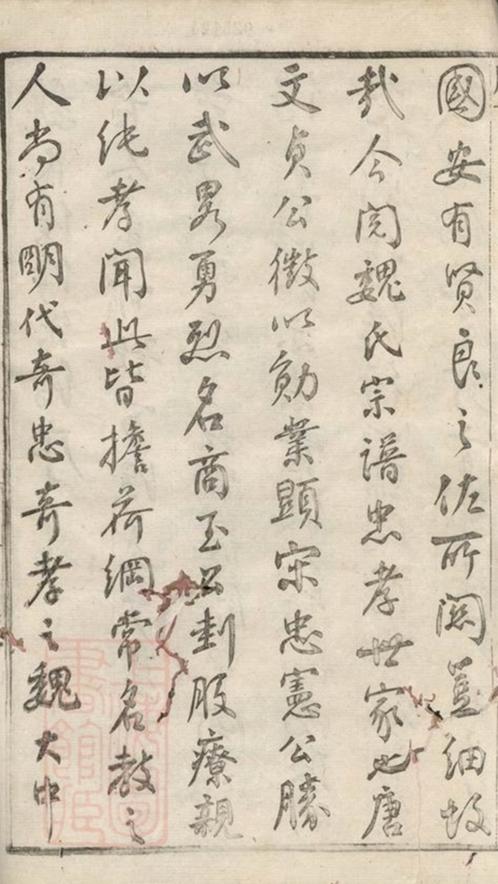 國安有賢良之佐所關豈細故
哉今閱魏氏宗譜忠孝世家也唐
文貞公徵以勛業顯宋忠憲公勝
以武畧勇烈名商玉公刲股療親
以純孝聞此皆擔荷綱常名教之
人尚有明代奇忠奇孝之魏大中